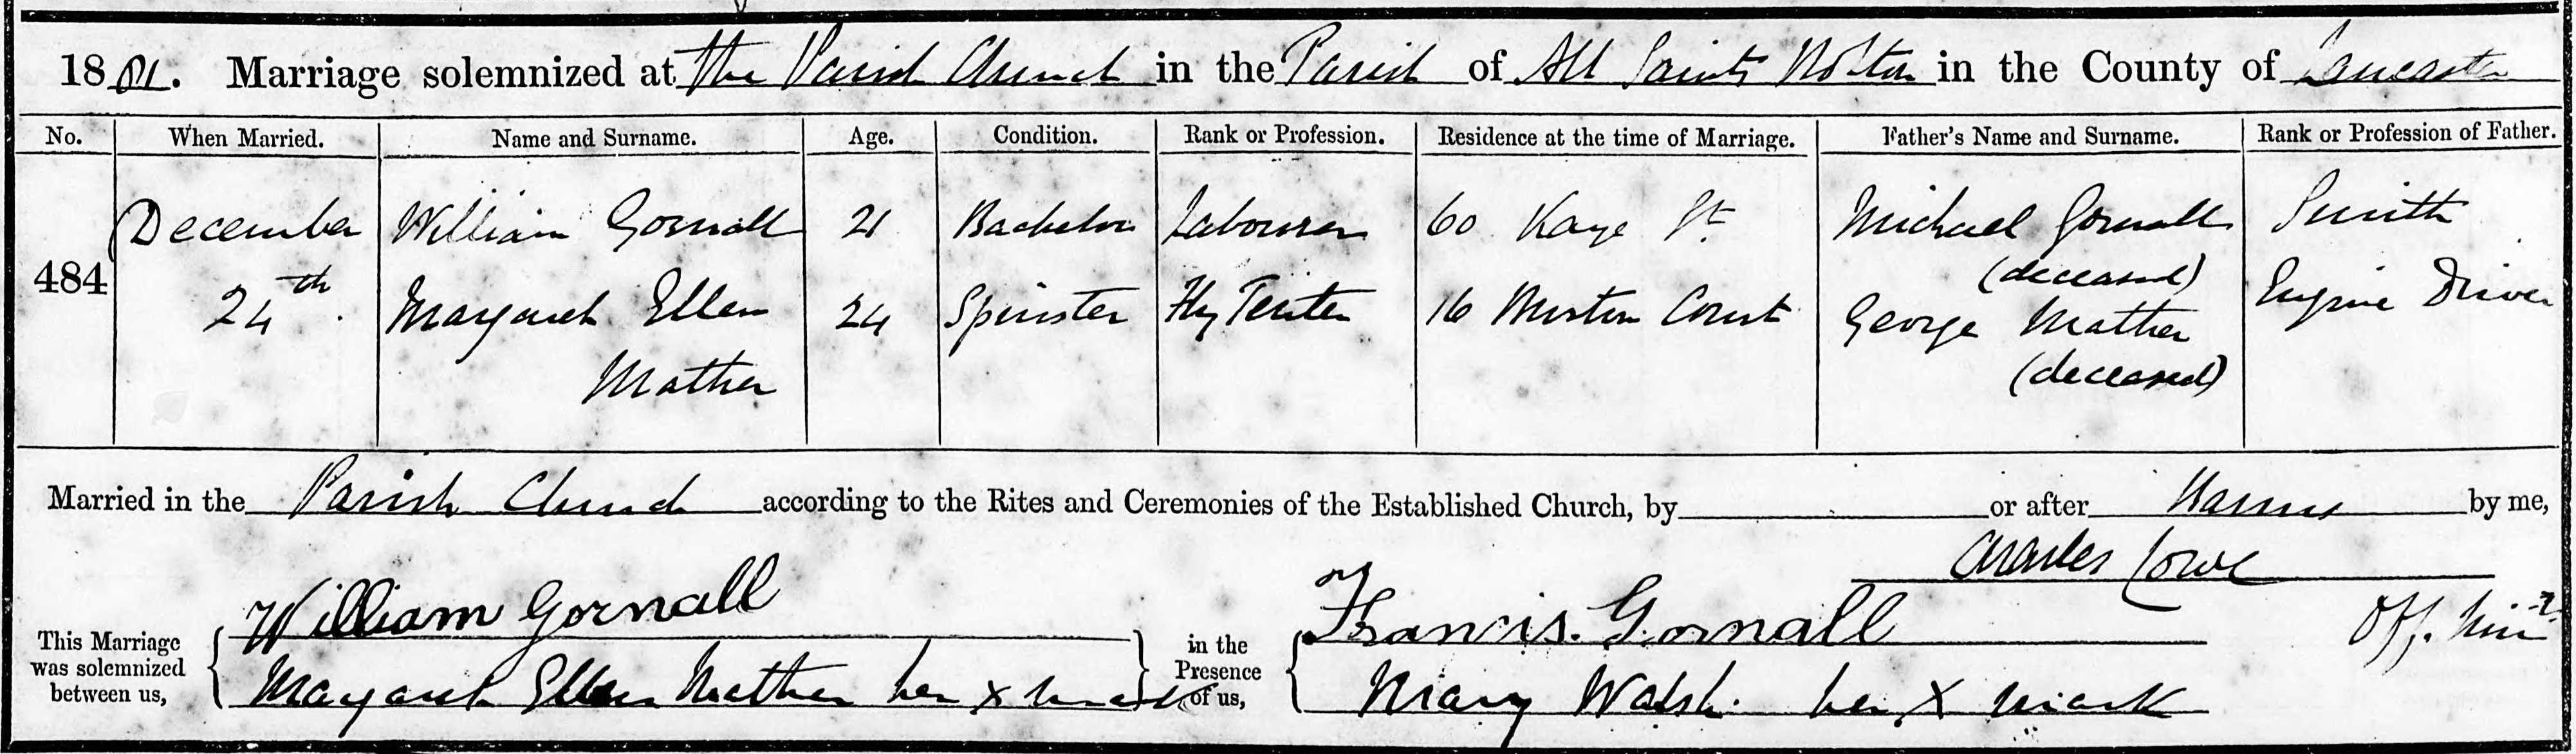 1881. Marriage solemnized at The Parish Church in the Parish of All Saints Bolton in the County of Lancaster
No. When Married. Name and Surname. Age. Condition. Rank or Profession. Residence at the time of Marriage. Father's Name and Surname. Rank or Profession of Father.
484 December 24th William Gornall 21 Bachelor Labourer 60 Kaye St. Michael Gornall (deceased) Smith
Margaret Ellen Mather 24 Spinster Fly Tenter 16 Court George Mather (deceased) Engine Driver
Married in the Parish Church according to the Rites and Ceremonies of the Established Church, by or after Banns by me,
Charles Lowe
Off. Minr.
This Marriage was solemnized between us,
William Gornall
Margaret Ellen Mather her x mark
in the Presence of us,
Francis. Gornall
Mary Walsh. her X mark